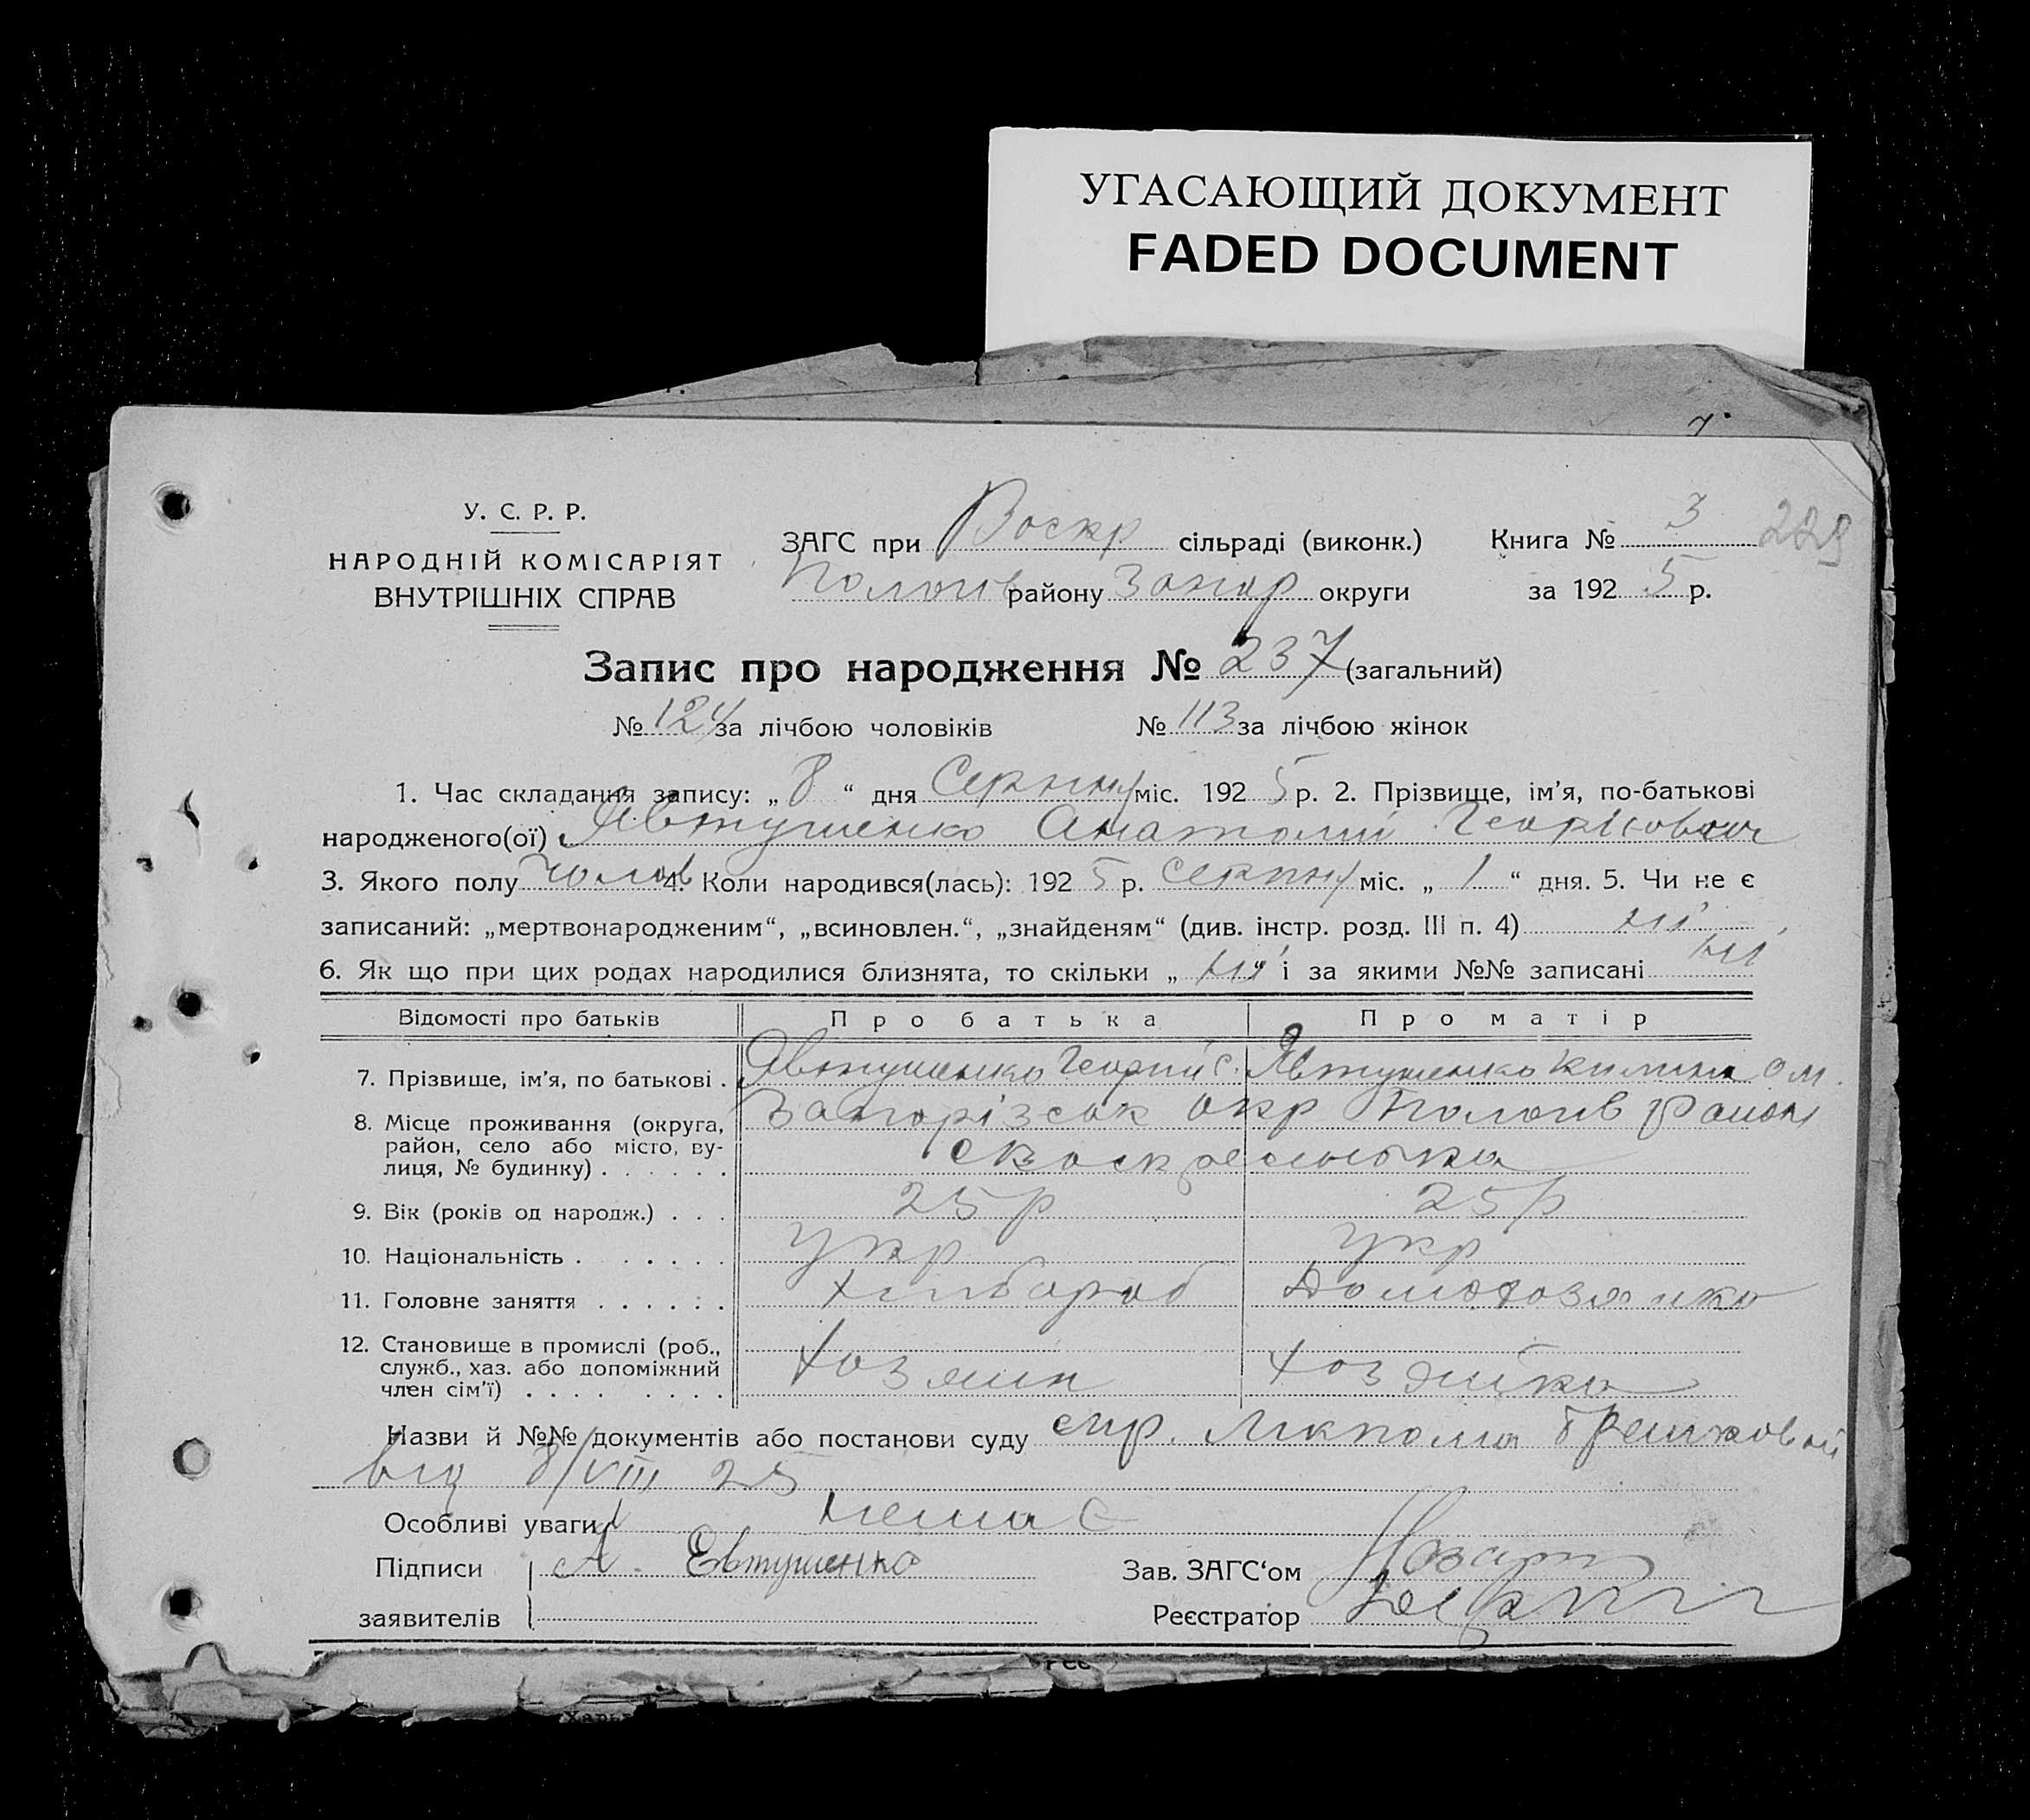 УГАСАЮЩИЙ ДОКУМЕНТ
FADED DOCUMENT
У. С. Р. Р.
НАРОДНІЙ КОМІСАРІЯТ
ВНУТРІШНІХ СПРАВ
ЗАГС при Воскр сільраді (виконк.) Книга № 3 229
Пологів району Запор округи за 1925 р.
Запис про народження № 237 (загальний)
№ 124 за лічбою чоловіків № 113 за лічбою жінок
1. Час складання запису: „8“ дня Серпня міс. 1925 р. 2. Прізвище, ім'я, по-батькові
народженого(ої) Явтушенко Анатолій Георгієвич
3. Якого полу чолов 4. Коли народився(лась): 1925 р. серпня міс. „1“ дня. 5. Чи не є
записаний: „мертвонародженим“, „всиновлен.“, „знайденям“ (див. інстр. розд. III п. 4) ні
6. Як що при цих родах народилися близнята, то скільки „ні“ і за якими №№ записані ні
Відомості про батьків Про батька Про матір
7. Прізвище, ім'я, по батькові . Явтушенко Георгій С. Явтушенко ом.
8. Місце проживання (округа, Запорізськ окр Пологів район
район, село або місто, ву-
лиця, № будинку) . . . . . . с Воскресенка
9. Вік (років од народж.) . . . 25 р 25 р
10. Національність . . . . . . укр укр
11. Головне заняття . . . . . . хлібороб Домохозяйка
12. Становище в промислі (роб.,
служб., хаз. або допоміжний хозяин хозяйка
член сім'ї) . . . . . . . .
Назви й №№ документів або постанови суду спр. Лікпома
від 8/VIII 25
Особливі уваги немає
Підписи А. Евтушенко Зав. ЗАГС'ом
заявителів Реєстратор